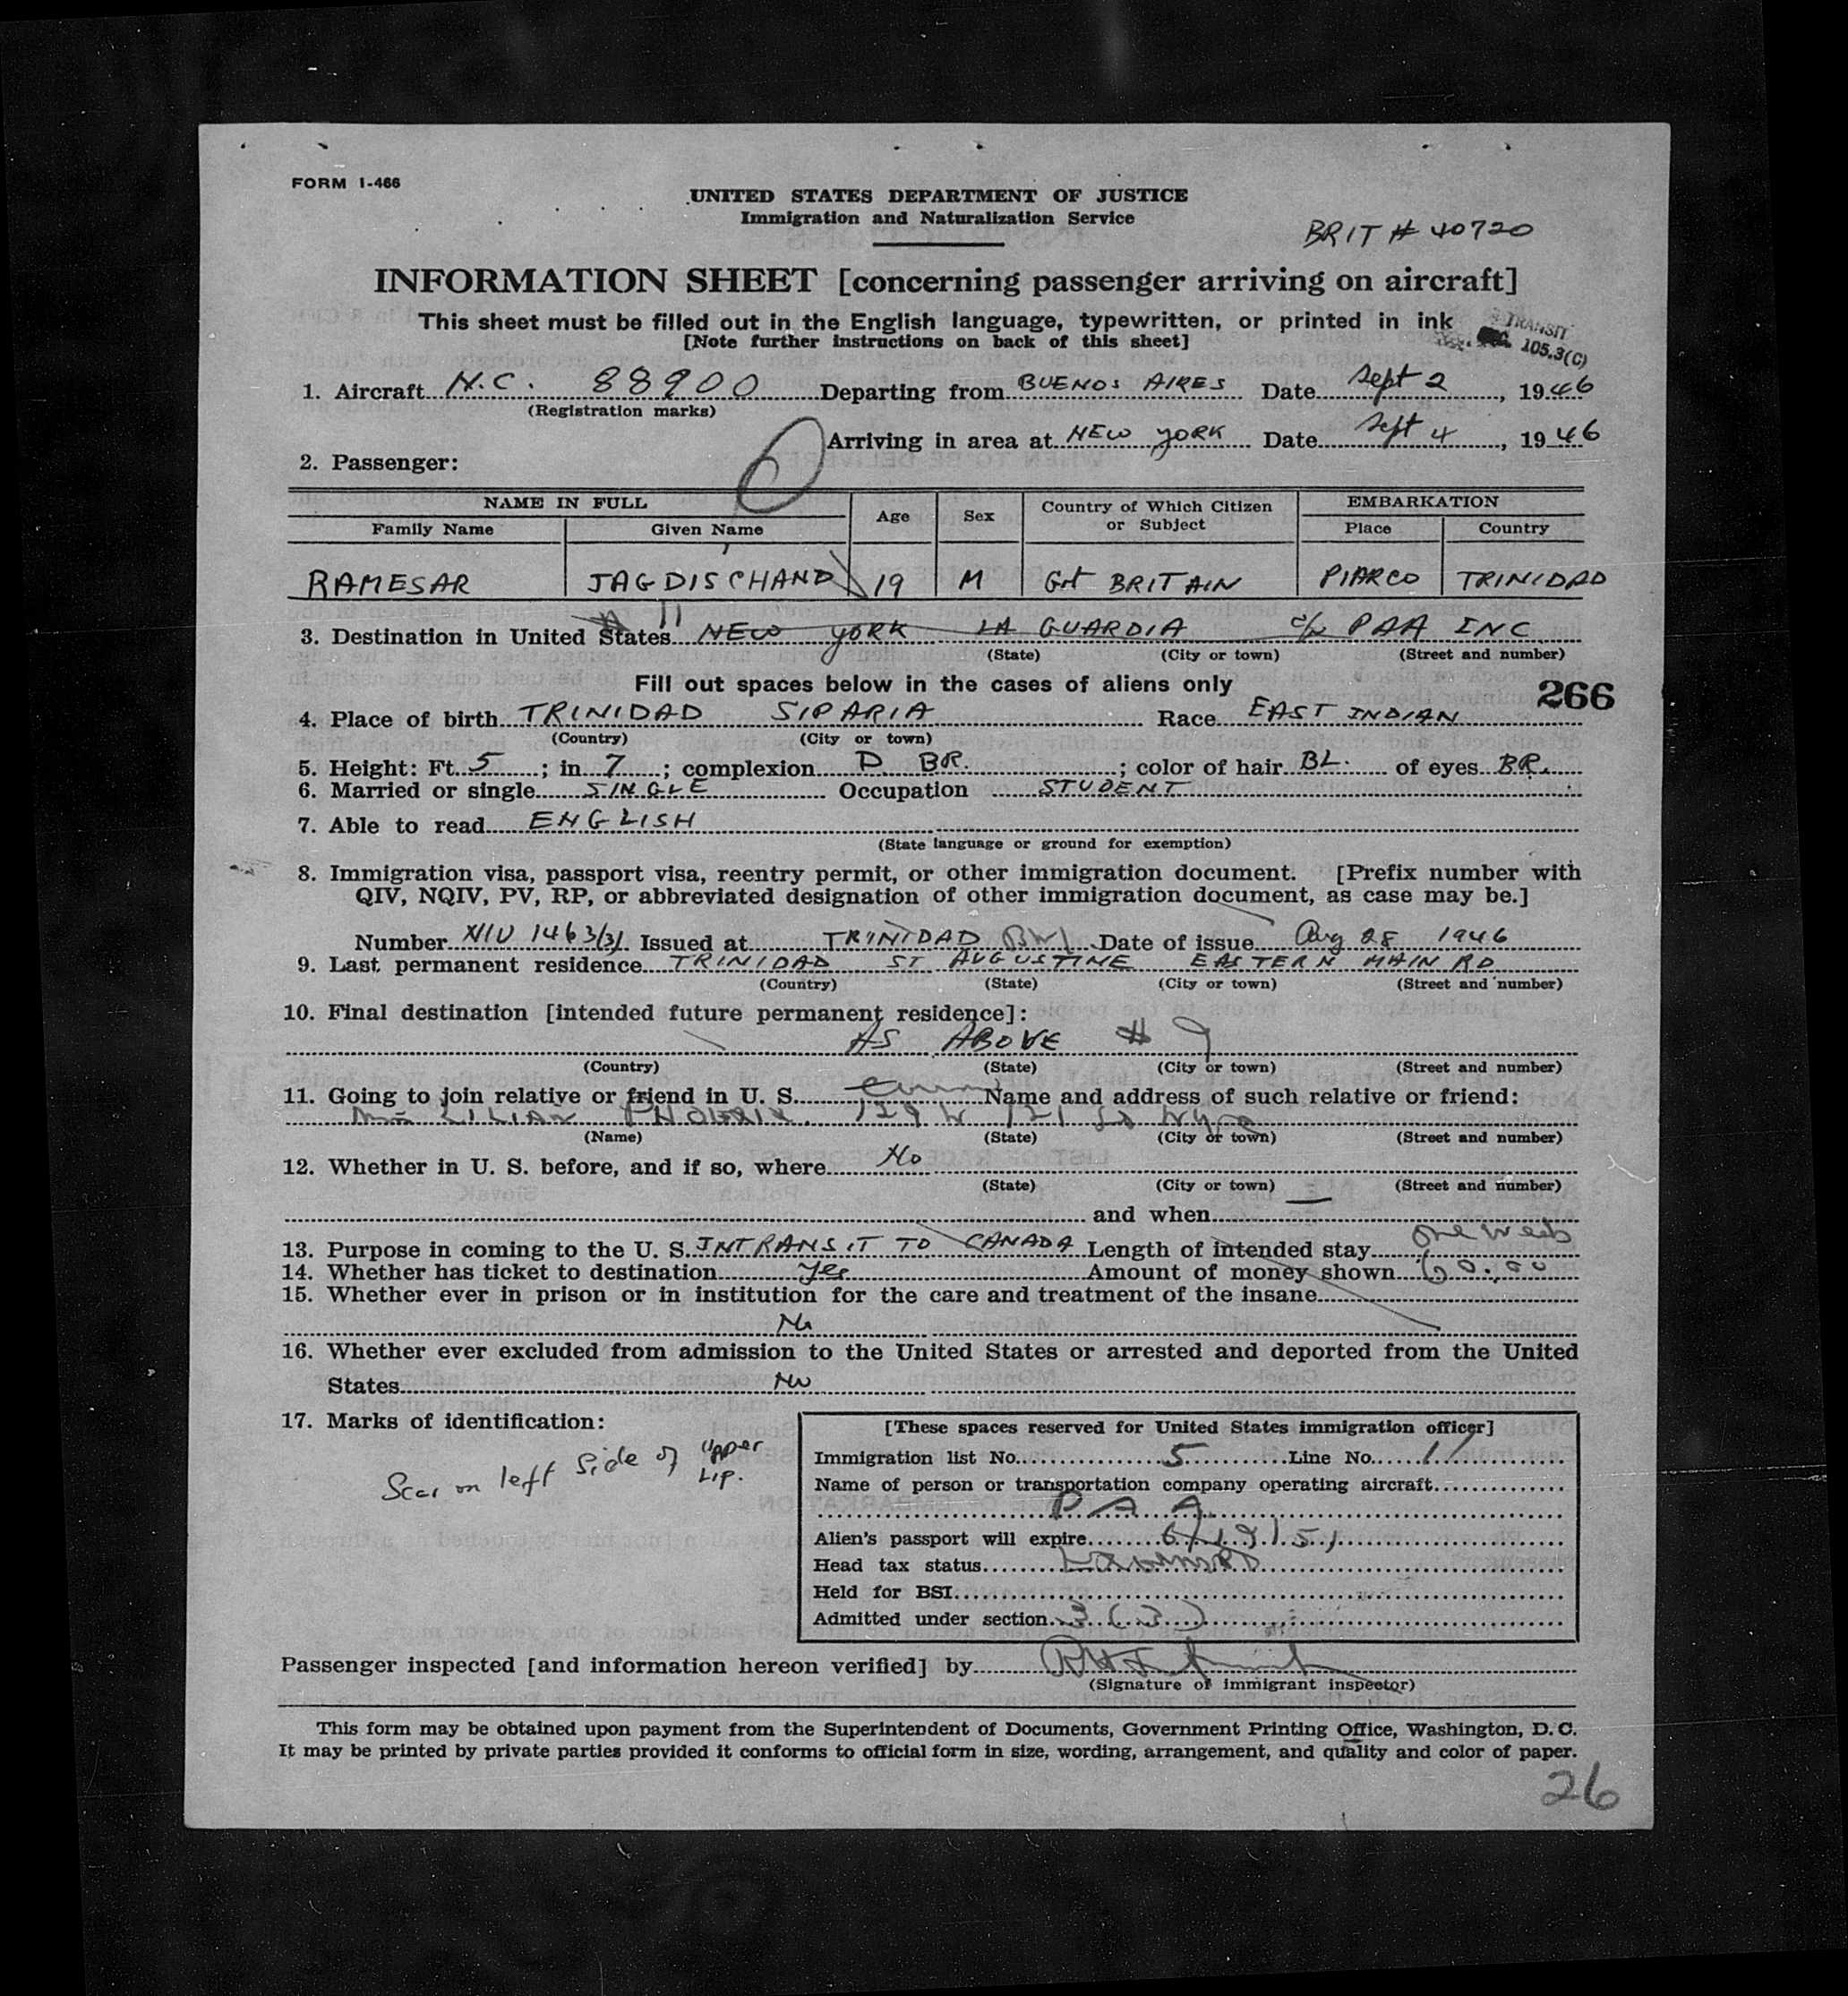 FORM I-466
UNITED STATES DEPARTMENT OF JUSTICE
Immigration and Naturalization Service
BRIT # 40720
INFORMATION SHEET [concerning passenger arriving on aircraft]
This sheet must be filled out in the English language, typewritten, or printed in ink
[Note further instructions on back of this sheet]
TRANSIT
105.3(C)
1. Aircraft N.C. 88900 Departing from BUENOS AIRES Date Sept 2, 1946
(Registration marks)
Arriving in area at NEW YORK Date Sept 4, 1946
2. Passenger:
NAME IN FULL Age Sex Country of Which Citizen or Subject EMBARKATION
Family Name Given Name Place Country
RAMESAR JAGDISCHAND 19 M Grt BRITAIN PIARCO TRINIDAD
3. Destination in United States NEW YORK LA GUARDIA c/o PAA INC
(State) (City or town) (Street and number)
Fill out spaces below in the cases of aliens only
266
4. Place of birth TRINIDAD SIPARIA Race EAST INDIAN
(Country) (City or town)
5. Height: Ft. 5; in 7; complexion D BR.; color of hair BL. of eyes BR.
6. Married or single SINGLE Occupation STUDENT
7. Able to read ENGLISH
(State language or ground for exemption)
8. Immigration visa, passport visa, reentry permit, or other immigration document. [Prefix number with
QIV, NQIV, PV, RP, or abbreviated designation of other immigration document, as case may be.]
Number NIV 1463/3/ Issued at TRINIDAD BWI Date of issue Aug 28 1946
9. Last permanent residence TRINIDAD ST AUGUSTINE EASTERN MAIN RD
(Country) (State) (City or town) (Street and number)
10. Final destination [intended future permanent residence]:
AS ABOVE # 9
(Country) (State) (City or town) (Street and number)
11. Going to join relative or friend in U. S. Name and address of such relative or friend:
LILIAN 129 W 121 St NYC
(Name) (State) (City or town) (Street and number)
12. Whether in U. S. before, and if so, where No
(State) (City or town) (Street and number)
and when —
13. Purpose in coming to the U. S. INTRANSIT TO CANADA Length of intended stay one week
14. Whether has ticket to destination Yes Amount of money shown 60.00
15. Whether ever in prison or in institution for the care and treatment of the insane
No
16. Whether ever excluded from admission to the United States or arrested and deported from the United
States No
17. Marks of identification:
Scar on left side of upper lip.
[These spaces reserved for United States immigration officer]
Immigration list No. 5 Line No. 11
Name of person or transportation company operating aircraft
P A A
Alien's passport will expire 6/19/51
Head tax status
Held for BSI
Admitted under section 3 (3)
Passenger inspected [and information hereon verified] by
(Signature of immigrant inspector)
This form may be obtained upon payment from the Superintendent of Documents, Government Printing Office, Washington, D. C.
It may be printed by private parties provided it conforms to official form in size, wording, arrangement, and quality and color of paper.
26